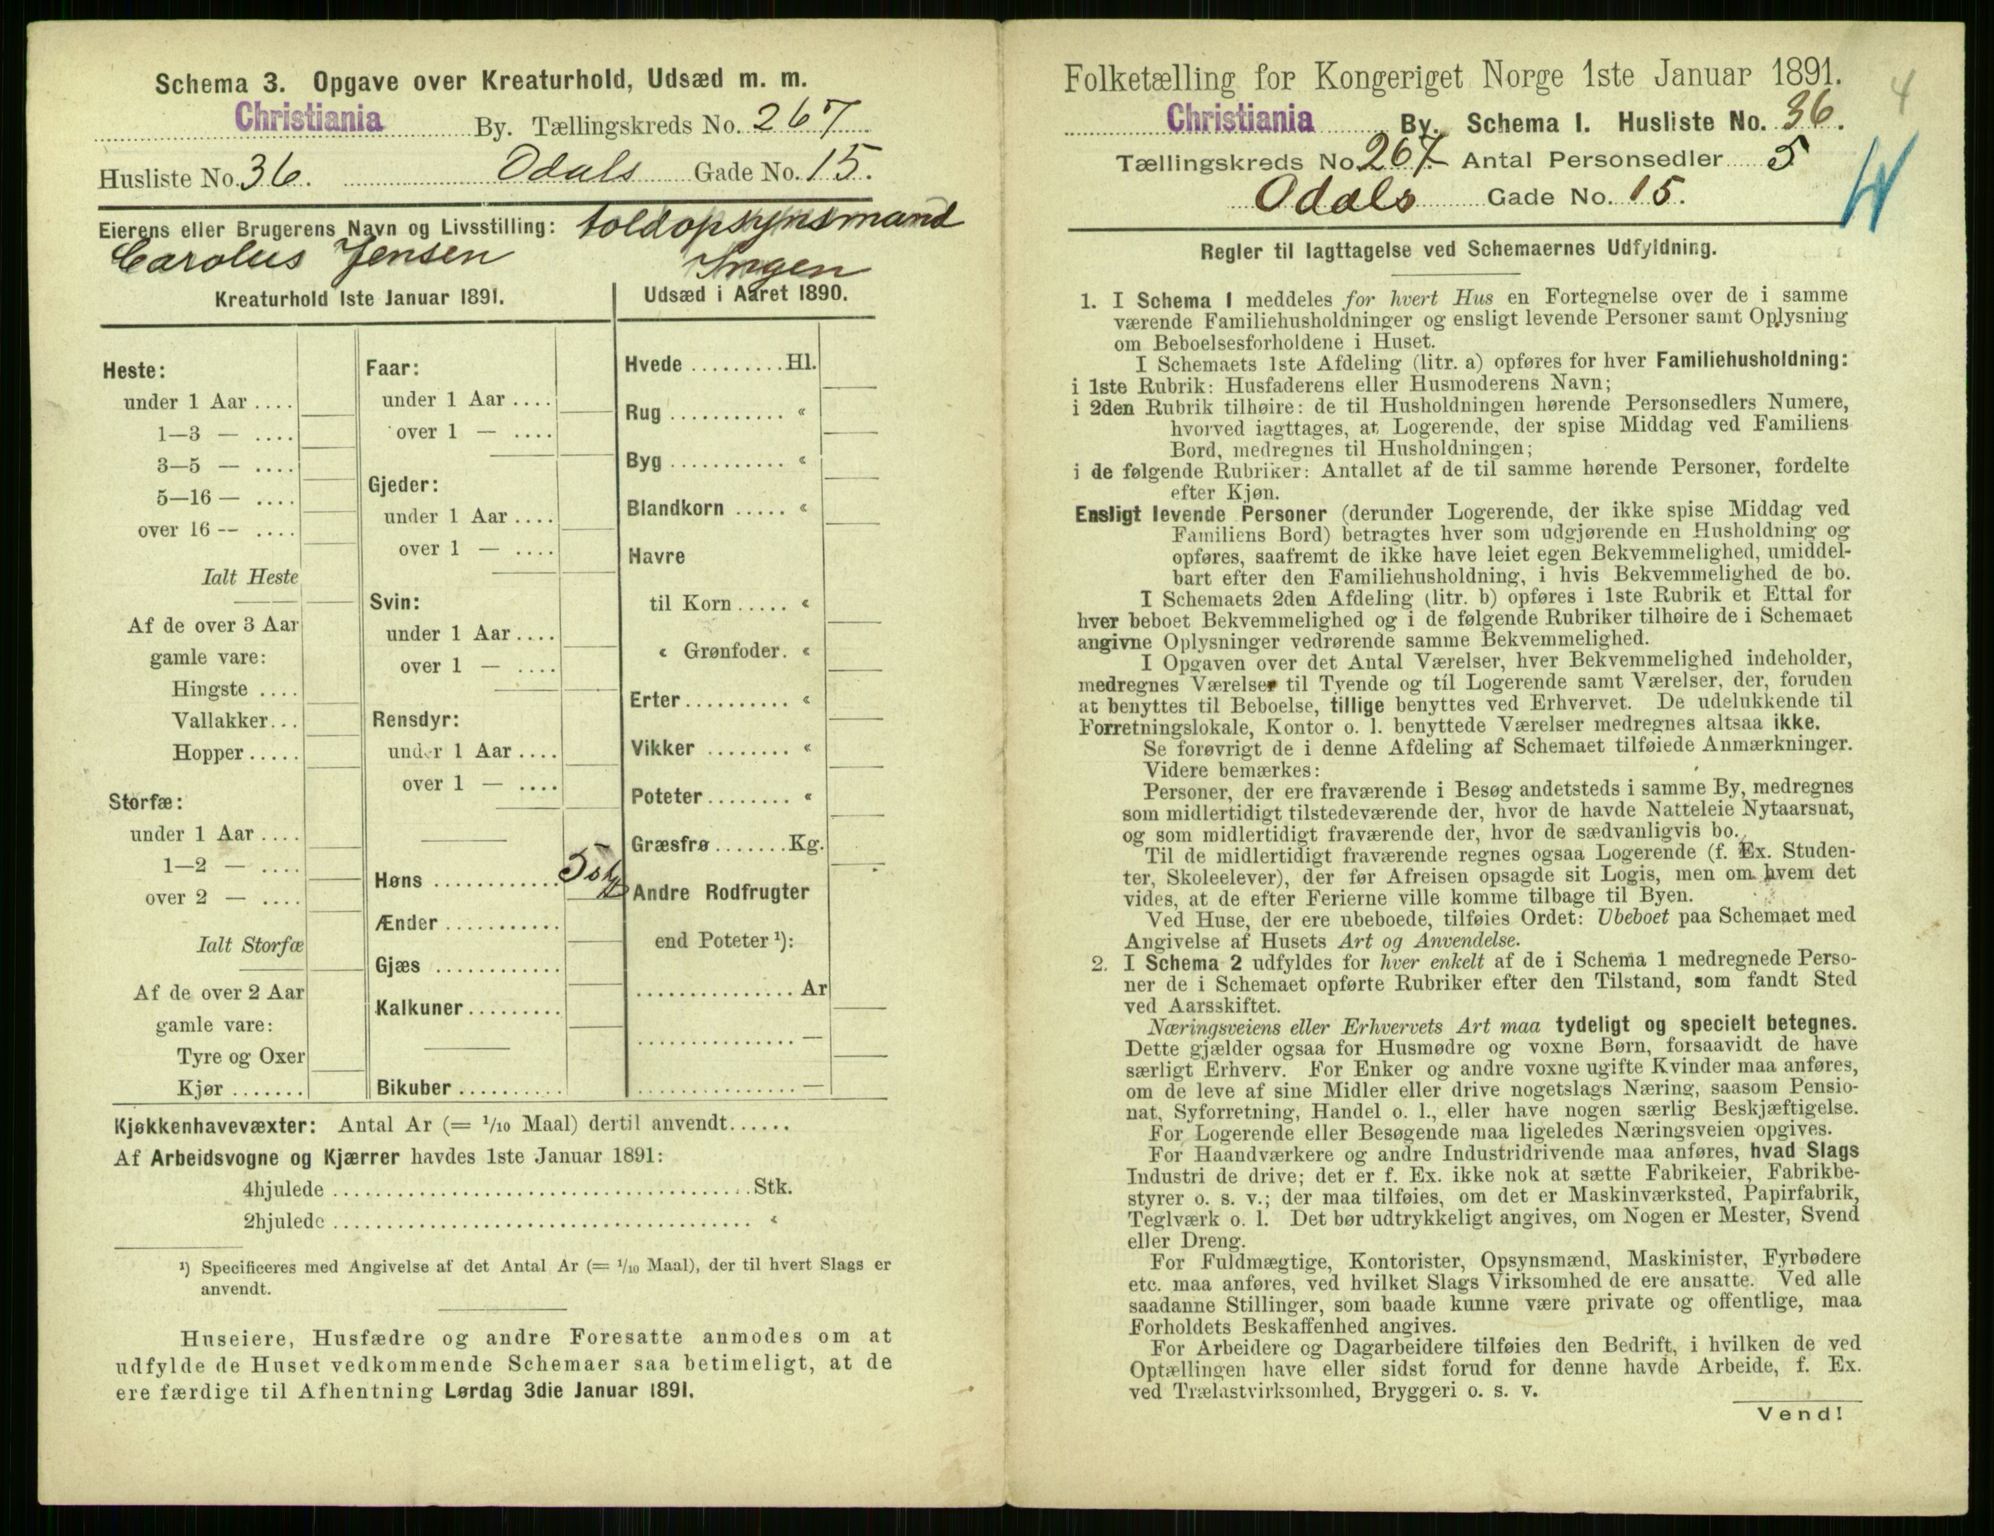 Schema 3. Opgave over Kreaturhold, Udsæd m. m.
Christiania By. Tællingskreds No. 267
Husliste No. 36. Odals Gade No. 15.
Eierens eller Brugerens Navn og Livsstilling: toldopsynsmand
Carolus Jensen Ingen
Kreaturhold 1ste Januar 1891.
Heste:
under 1 Aar ....
1—3 — ....
3—5 — ....
5—16 — ....
over 16 — ....
Ialt Heste
Af de over 3 Aar
gamle vare:
Hingste ....
Vallakker...
Hopper.....
Storfæ:
under 1 Aar ....
1—2 — ....
over 2 — ....
Ialt Storfæ
Af de over 2 Aar
gamle vare:
Tyre og Oxer
Kjør .......
Faar:
under 1 Aar ....
over 1 — ....
Gjeder:
under 1 Aar ....
over 1 — ....
Svin:
under 1 Aar ....
over 1 — ....
Rensdyr:
under 1 Aar ....
over 1 — ....
Høns ............ 5
Ænder ...........
Gjæs ............
Kalkuner.........
Bikuber ..........
Udsæd i Aaret 1890.
Hvede .........Hl.
Rug ........... «
Byg ........... «
Blandkorn ..... «
Havre
til Korn ..... «
« Grønfoder. «
Erter.......... «
Vikker ........ «
Poteter........ «
Græsfrø.......Kg.
Andre Rodfrugter
end Poteter ¹):
............... Ar
............... —
............... —
Kjøkkenhavevæxter: Antal Ar (= 1/10 Maal) dertil anvendt......
Af Arbeidsvogne og Kjærrer havdes 1ste Januar 1891:
4hjulede ........................................Stk.
2hjulede ........................................ «
¹) Specificeres med Angivelse af det Antal Ar (= 1/10 Maal), der til hvert Slags er
anvendt.
Huseiere, Husfædre og andre Foresatte anmodes om at
udfylde de Huset vedkommende Schemaer saa betimeligt, at de
ere færdige til Afhentning Lørdag 3die Januar 1891.
Folketælling for Kongeriget Norge 1ste Januar 1891. 4
Christiania By. Schema I. Husliste No. 36.
Tællingskreds No. 267 Antal Personsedler 5
Odals Gade No. 15.
Regler til Iagttagelse ved Schemaernes Udfyldning.
1. I Schema I meddeles for hvert Hus en Fortegnelse over de i samme
værende Familiehusholdninger og ensligt levende Personer samt Oplysning
om Beboelsesforholdene i Huset.
I Schemaets 1ste Afdeling (litr. a) opføres for hver Familiehusholdning:
i 1ste Rubrik: Husfaderens eller Husmoderens Navn;
i 2den Rubrik tilhøire: de til Husholdningen hørende Personsedlers Numere,
hvorved iagttages, at Logerende, der spise Middag ved Familiens
Bord, medregnes til Husholdningen;
i de følgende Rubriker: Antallet af de til samme hørende Personer, fordelte
efter Kjøn.
Ensligt levende Personer (derunder Logerende, der ikke spise Middag ved
Familiens Bord) betragtes hver som udgjørende en Husholdning og
opføres, saafremt de ikke have leiet egen Bekvemmelighed, umiddel-
bart efter den Familiehusholdning, i hvis Bekvemmelighed de bo.
I Schemaets 2den Afdeling (litr. b) opføres i 1ste Rubrik et Ettal for
hver beboet Bekvemmelighed og i de følgende Rubriker tilhøire de i Schemaet
angivne Oplysninger vedrørende samme Bekvemmelighed.
I Opgaven over det Antal Værelser, hver Bekvemmelighed indeholder,
medregnes Værelser til Tyende og til Logerende samt Værelser, der, foruden
at benyttes til Beboelse, tillige benyttes ved Erhvervet. De udelukkende til
Forretningslokale, Kontor o. l. benyttede Værelser medregnes altsaa ikke.
Se forøvrigt de i denne Afdeling af Schemaet tilføiede Anmærkninger.
Videre bemærkes:
Personer, der ere fraværende i Besøg andetsteds i samme By, medregnes
som midlertidigt tilstedeværende der, hvor de havde Natteleie Nytaarsnat,
og som midlertidigt fraværende der, hvor de sædvanligvis bo.
Til de midlertidigt fraværende regnes ogsaa Logerende (f. Ex. Studen-
ter, Skoleelever), der før Afreisen opsagde sit Logis, men om hvem det
vides, at de efter Ferierne ville komme tilbage til Byen.
Ved Huse, der ere ubeboede, tilføies Ordet: Ubeboet paa Schemaet med
Angivelse af Husets Art og Anvendelse.
2. I Schema 2 udfyldes for hver enkelt af de i Schema 1 medregnede Perso-
ner de i Schemaet opførte Rubriker efter den Tilstand, som fandt Sted
ved Aarsskiftet.
Næringsveiens eller Erhvervets Art maa tydeligt og specielt betegnes.
Dette gjælder ogsaa for Husmødre og voxne Børn, forsaavidt de have
særligt Erhverv. For Enker og andre voxne ugifte Kvinder maa anføres,
om de leve af sine Midler eller drive nogetslags Næring, saasom Pensio-
nat, Syforretning, Handel o. l., eller have nogen særlig Beskjæftigelse.
For Logerende eller Besøgende maa ligeledes Næringsveien opgives.
For Haandværkere og andre Industridrivende maa anføres, hvad Slags
Industri de drive; det er f. Ex. ikke nok at sætte Fabrikeier, Fabrikbe-
styrer o. s. v.; der maa tilføies, om det er Maskinværksted, Papirfabrik,
Teglværk o. l. Det bør udtrykkeligt angives, om Nogen er Mester, Svend
eller Dreng.
For Fuldmægtige, Kontorister, Opsynsmænd, Maskinister, Fyrbødere
etc. maa anføres, ved hvilket Slags Virksomhed de ere ansatte. Ved alle
saadanne Stillinger, som baade kunne være private og offentlige, maa
Forholdets Beskaffenhed angives.
For Arbeidere og Dagarbeidere tilføies den Bedrift, i hvilken de ved
Optællingen have eller sidst forud for denne havde Arbeide, f. Ex.
ved Trælastvirksomhed, Bryggeri o. s. v.
Vend!